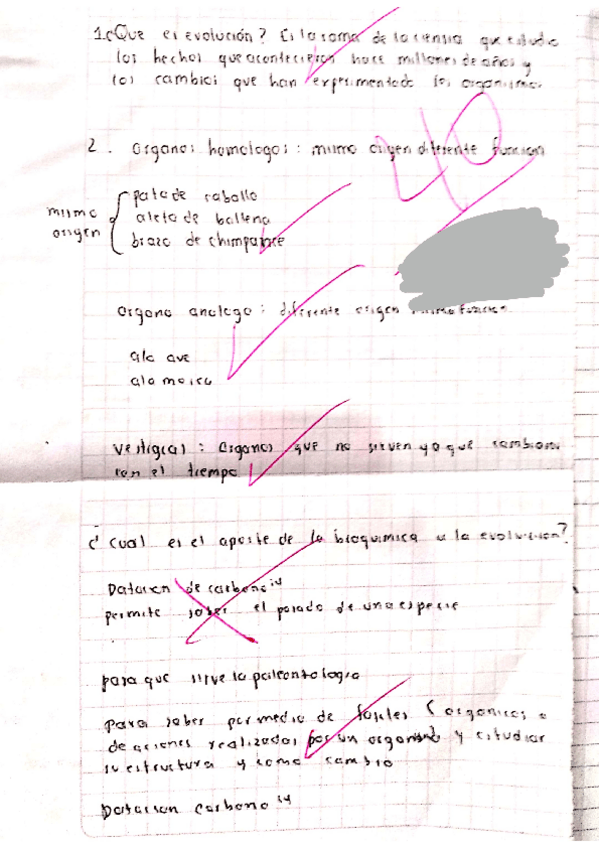 1. ¿Que es evolución? Es la rama de la ciencia que estudia
los hechos que acontecieron hace millones de años y
los cambios que han experimentado los organismos.
40
2. Organos homologos: mismo origen diferente funcion
mismo
origen
pata de caballo
aleta de ballena
brazo de chimpance
organo analogo: diferente origen misma funcion.
ala ave
ala mosca
vestigial: organos que no sirven ya que cambiaron
con el tiempo
¿Cual es el aporte de la bioquimica a la evolucion?
Datacion de carbono 14
permite saber el pasado de una especie
para que sirve la paleontologia
para saber por medio de fosiles (organicos o
de acciones realizadas por un organismo) y estudiar
su estructura y como cambio
Datacion carbono 14